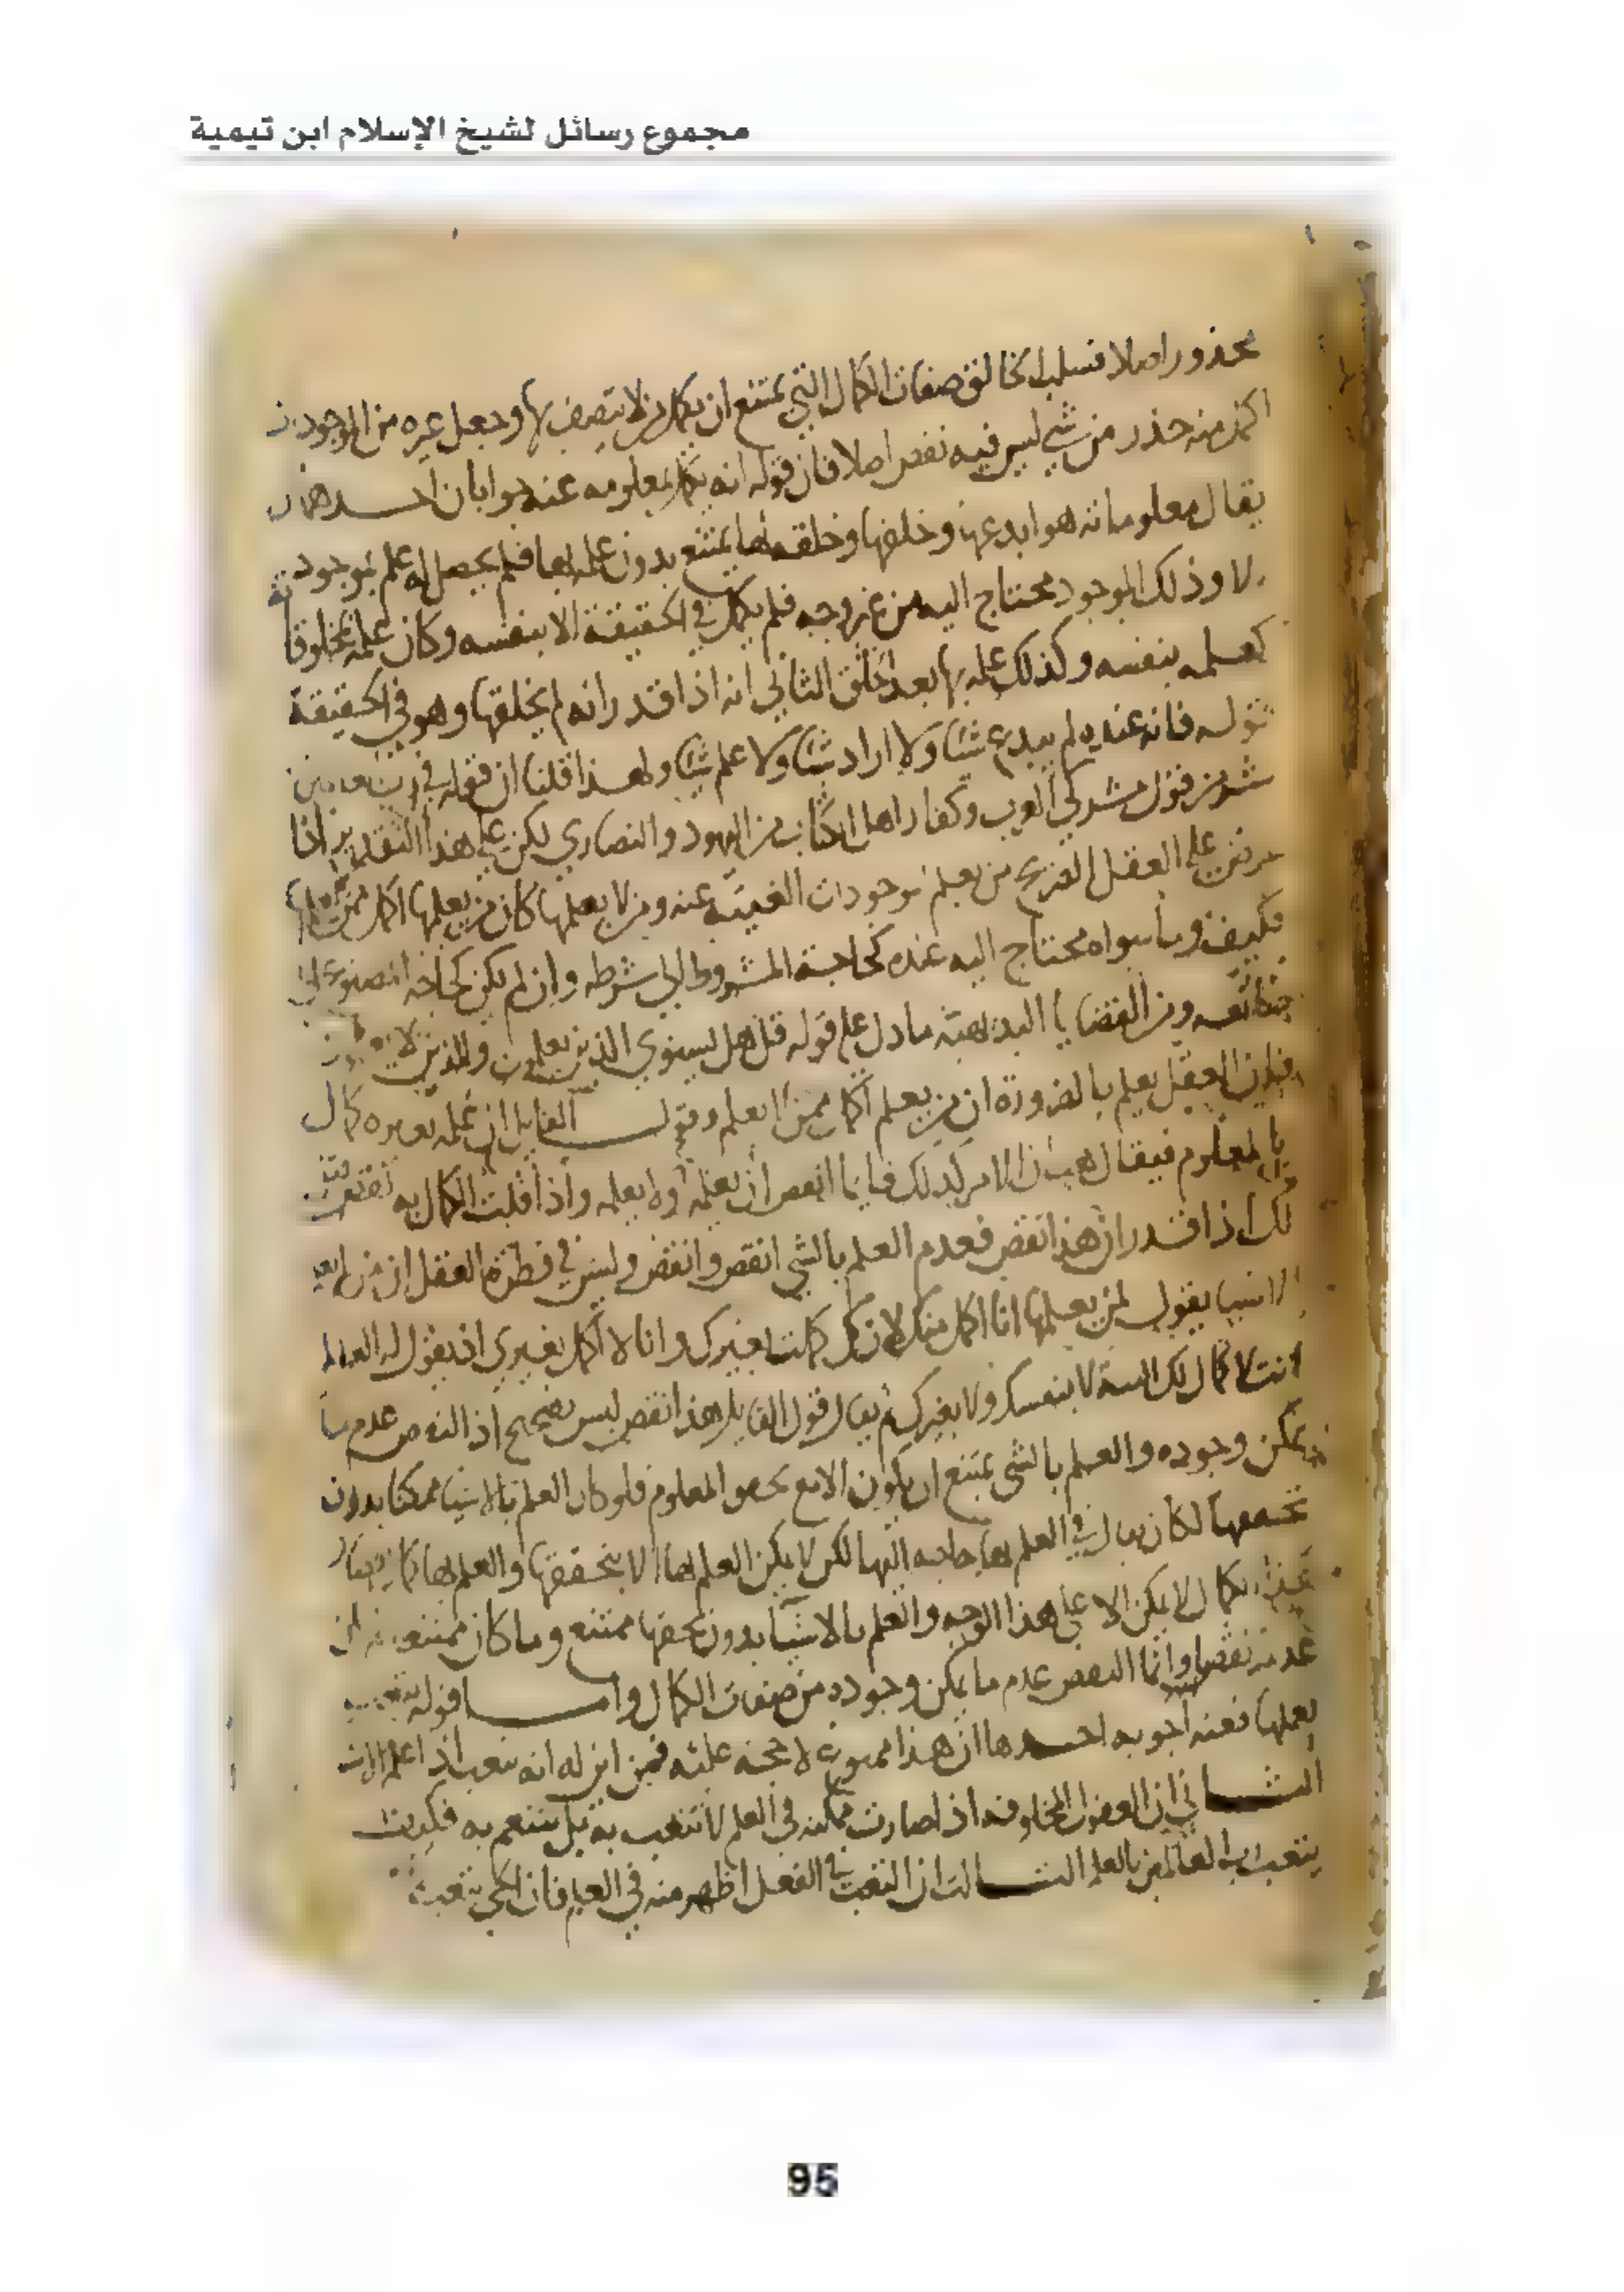 مجموع رسائل لشيخ الإسلام ابن تيمية
محذورا اصلا فسلب الخالق صفات الكمال التي يمتنع ان يكمل من لا يتصف بها وجعل غيره من الموجودات
اكمل منه حذر من شي ليس فيه نقص اصلا فان قوله انه يكمل بمعلومه عنه جوابان احدهما ان
يقال معلوماته هو ابدعها وخلقها وخلقه لها يمتنع بدون علمه بها فلم يحصل له علم بموجود
الا وذلك الموجود محتاج اليه من غير وجه فلم يكمل في الحقيقة الا بنفسه وكان علمه بمخلوقاته
كعلمه بنفسه وكذلك علمه بها بعد الخلق الثاني انه اذا قدر انه لم يخلقها وهو في الحقيقة
قوله فانه عنده لم يبدع شيئا ولا اراد شيئا ولا علم شيئا ولهذا قلنا ان قوله في رب العالمين
شر من قول مشركي العرب وكفار اهل الكتاب من اليهود والنصاري لكن علي هذا التقدير اذا
عرض علي العقل الصريح من يعلم موجودات الغنية عنه ومن لا يعلمها كان من يعلمها اكمل ممن
فكيف وما سواه محتاج اليه عنده كحاجة المشروط الي شرطه وان لم يكن كحاجة المصنوع الي
صانعه ومن القضايا البديهية ما دل علي قوله قل هل يستوي الذين يعلمون والذين لا
فان العقل يعلم بالضرورة ان من يعلم اكمل ممن لا يعلم وقول القايل ان علمه بغيره كمال
بالمعلوم فيقال هب ان الامر كذلك فايما انقص ان يعلمه او لا يعلمه واذا قلت الكمال به
لك اذا قدر ان هذا نقص فعدم العلم بالشي انقص وانقص وليس في فطرة العقل ان من لم
الاشيا يقول لمن يعلمها انا اكمل منك لانك كملت بغيرك وانا لا اكمل بغيري اذ يقول له العالم
انت لا كمال لك البتة لا بنفسك ولا بغيرك ثم يقال قول القايل هذا نقص ليس بصحيح اذ النقص عدم ما
يمكن وجوده والعلم بالشي يمتنع ان يكون الا مع تحقق المعلوم فلو كان العلم بالاشيا ممكنا بدون
تحققها لكان يقال في العلم بها حاجه اليها لكن لا يمكن العلم بها الا بتحققها والعلم بها كمال
الكمال لا يمكن الا علي هذا الوجه والعلم بالاشيا بدون تحققها ممتنع وما كان ممتنعا لم يكن
عدمه نقصا وانما النقص عدم ما يمكن وجوده من صفات الكمال واما قوله يتعب
بعلمها فعنه اجوبه احدها ان هذا ممنوع لا حجة عليه فمن اين له انه يتعب اذا علم
الثاني ان العقول المخلوقه اذا صارت ممكنه في العلم لا تتعب به بل تتنعم به فكيف
يتعب رب العالمين بالعلم الثالث ان التعب في الفعل اظهر منه في العلم فان الحي يتعب
95